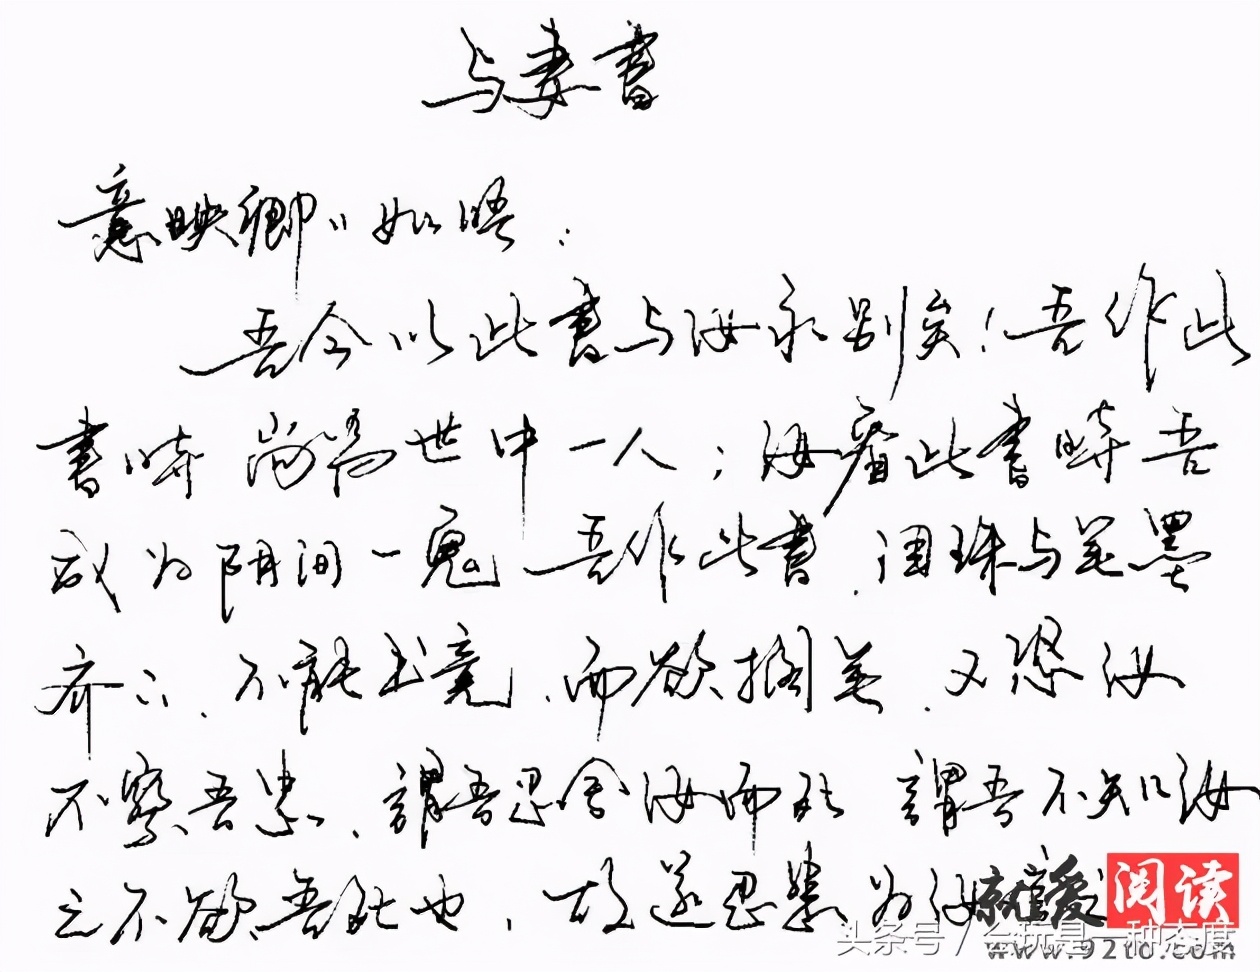 与妻書
意映卿〃如晤：
吾今以此書与汝永别矣！吾作此
書時尚為世中一人；汝看此書時吾
成为阴间一鬼 吾作此書，泪珠与笔墨
齐下，不能书竟，而欲搁笔，又恐汝
不察吾衷，謂吾忍舍汝而死 謂吾不知汝
之不欲吾死也，故遂忍悲为汝
就爱阅读
头条号 / 会玩是一种态度
www.92to.com